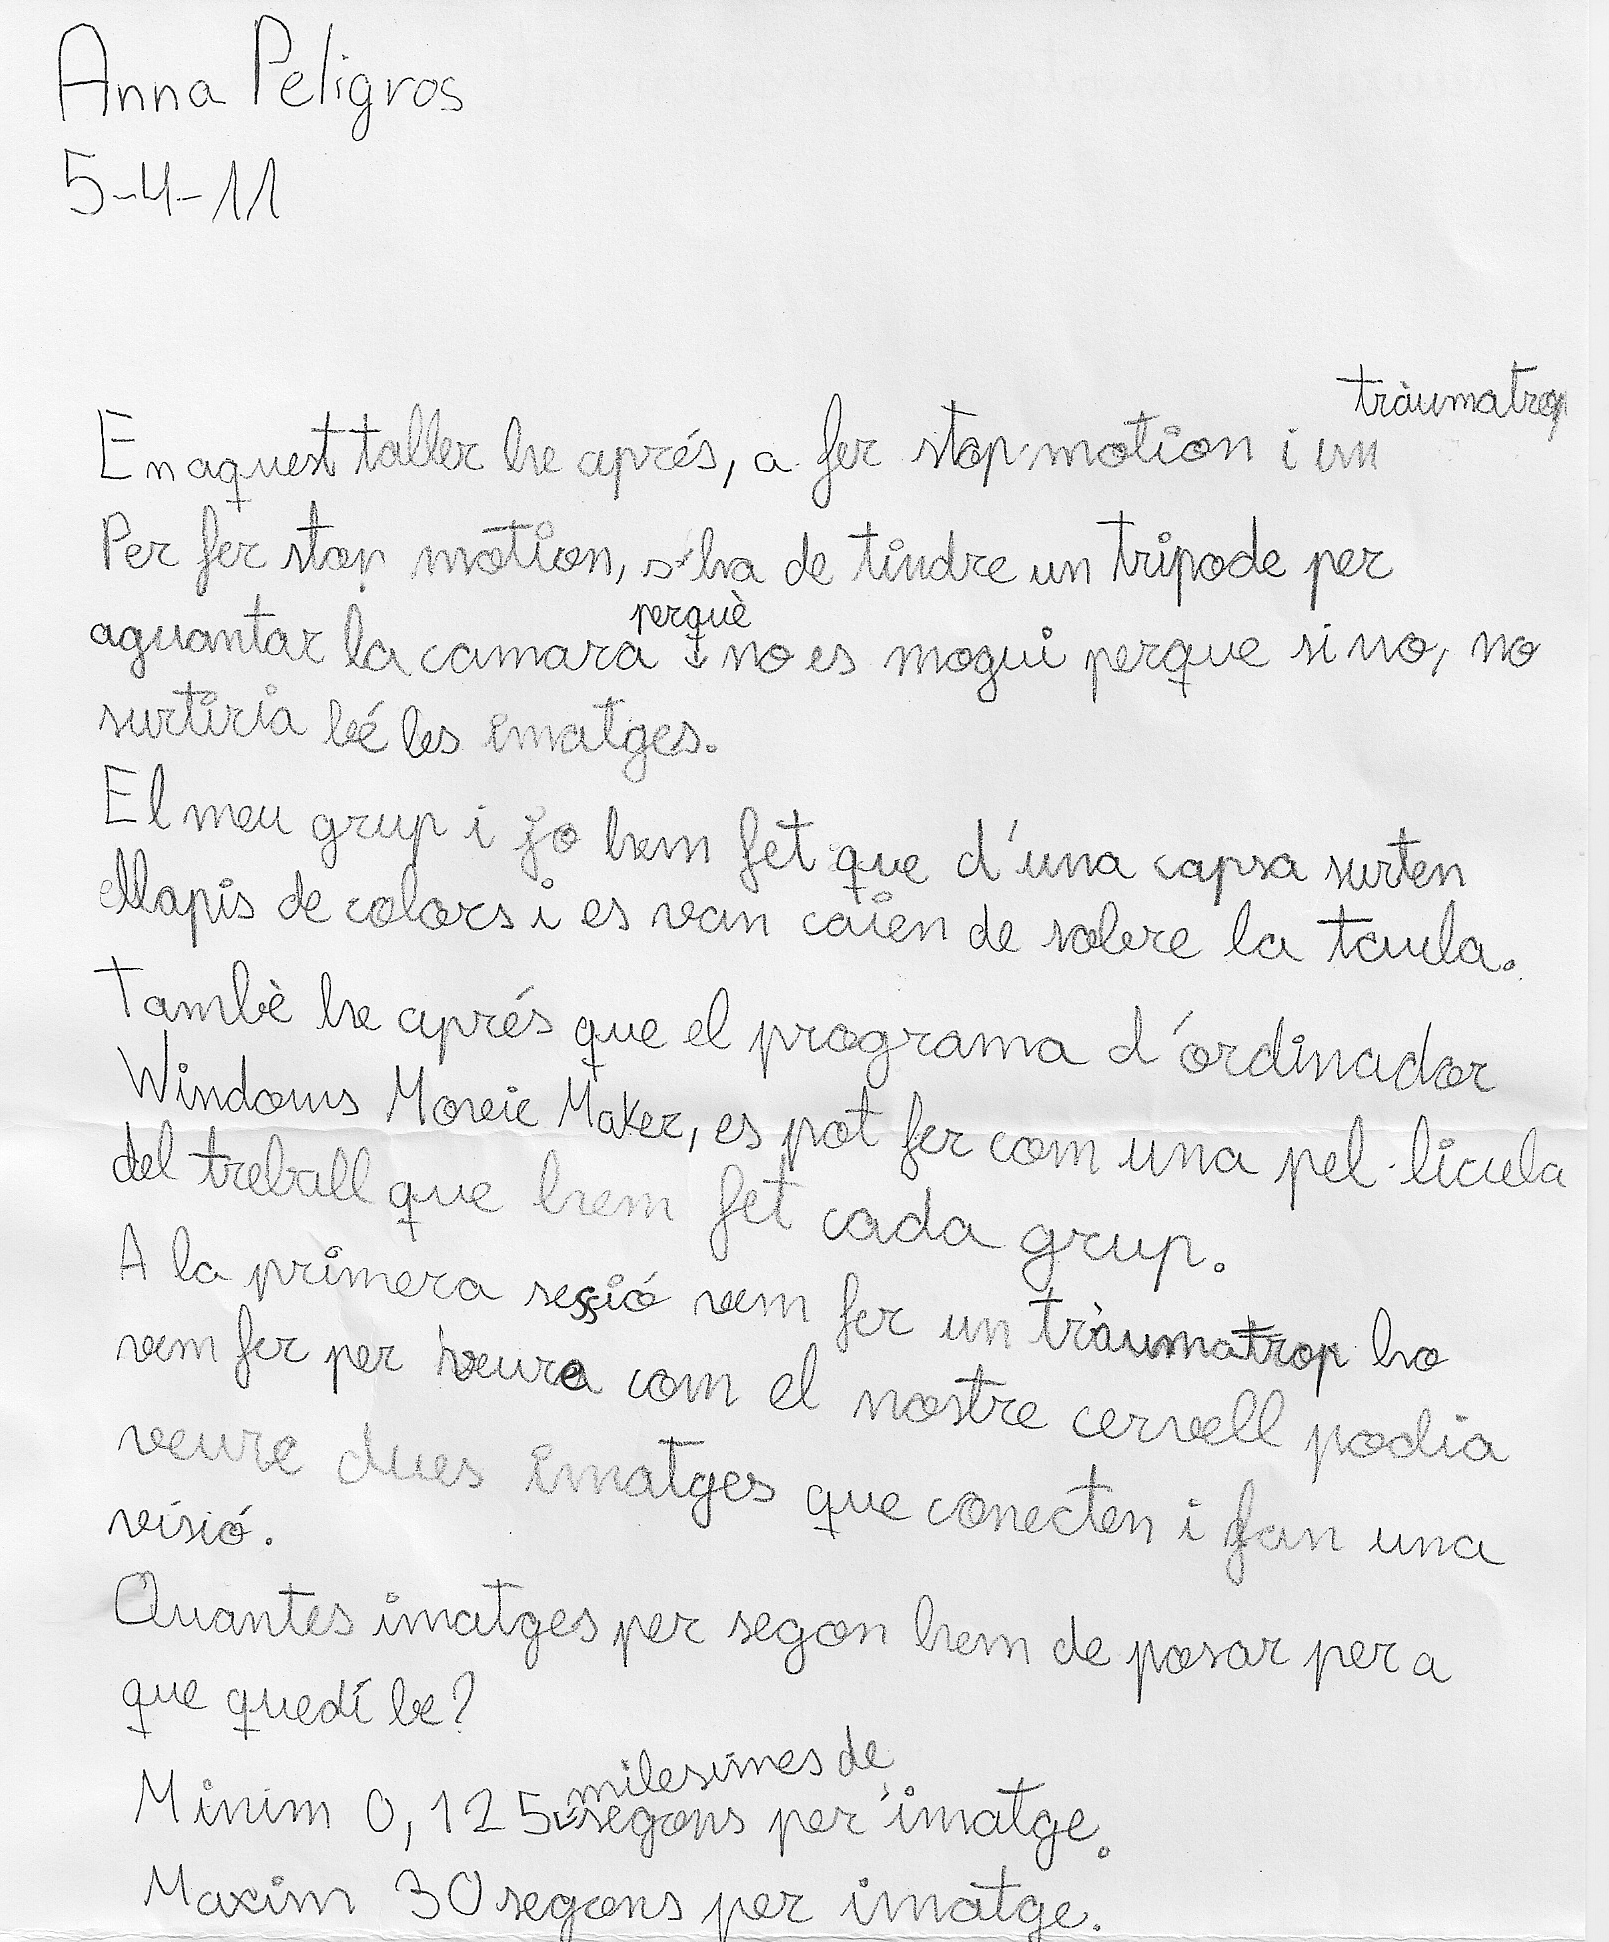 Anna Peligros
5-4-11
tràumatrop
En aquest taller he aprés, a fer stop motion i un
Per fer stop motion, s'ha de tindre un tripode per
perquè
aguantar la camara no es mogui perque si no, no
surtiria bé les imatges.
El meu grup i jo hem fet que d'una capsa surten
llapis de colors i es van caien de sobre la taula.
Tambè he aprés que el programa d'ordinador
Windows Moveie Maker, es pot fer com una pel·licula
del treball que hem fet cada grup.
A la primera sessió vem fer un tràumatrop ho
vem fer per veure com el nostre cervell podia
veure dues imatges que conecten i fan una
visió.
Quantes imatges per segon hem de posar per a
que quedi be?
milesimes de
Minim 0,125 segons per imatge.
Maxim 30 segons per imatge.